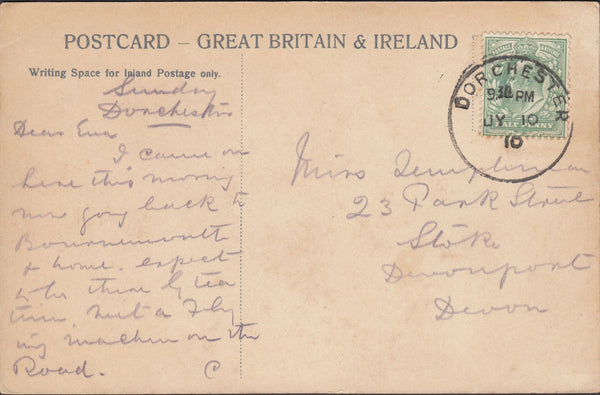 POSTCARD – GREAT BRITAIN & IRELAND
Writing Space for Inland Postage only.
Sunday
Dorchester
Dear Eva
I came on
here this morning
now going back to
Bournemouth
& home. expect
to be there by tea
time. Met a Fly
ing machine on the
Road. C
DORCHESTER
9.30 PM
JY 10
10
HALFPENNY
Miss Templeman
23 Park Street
Stoke
Devonport
Devon